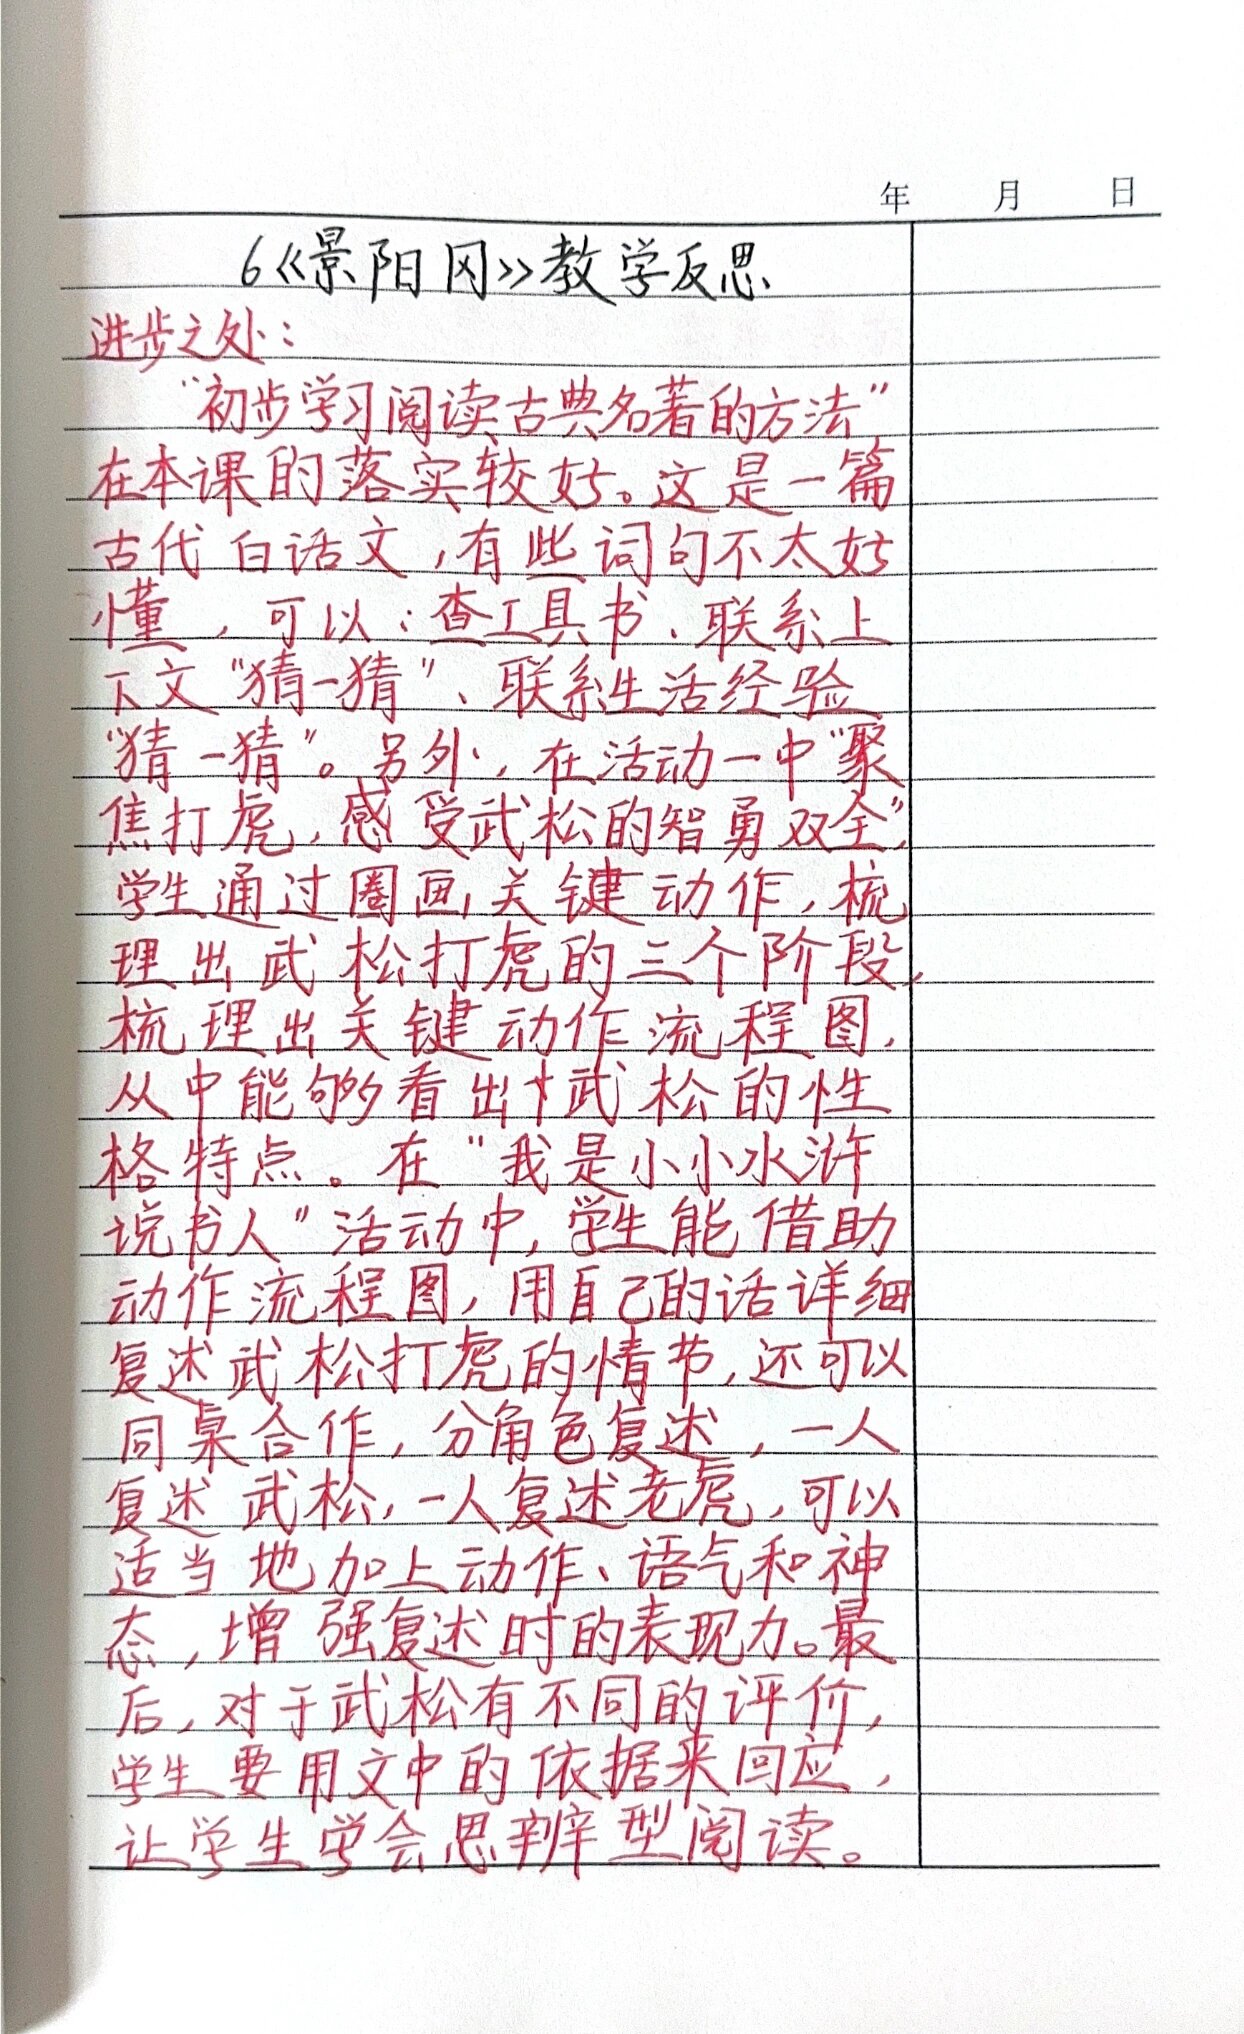 年 月 日
6《景阳冈》教学反思
进步之处：
“初步学习阅读古典名著的方法”
在本课的落实较好。这是一篇
古代白话文，有些词句不太好
懂，可以：查工具书、联系上
下文“猜一猜”、联系生活经验
“猜一猜”。另外，在活动一中“聚
焦打虎，感受武松的智勇双全”，
学生通过圈画关键动作，梳
理出武松打虎的三个阶段，
梳理出关键动作流程图，
从中能够看出武松的性
格特点。在“我是小小水浒
说书人”活动中，学生能借助
动作流程图，用自己的话详细
复述武松打虎的情节，还可以
同桌合作，分角色复述，一人
复述武松，一人复述老虎，可以
适当地加上动作、语气和神
态，增强复述时的表现力。最
后，对于武松有不同的评价，
学生要用文中的依据来回应，
让学生学会思辨型阅读。